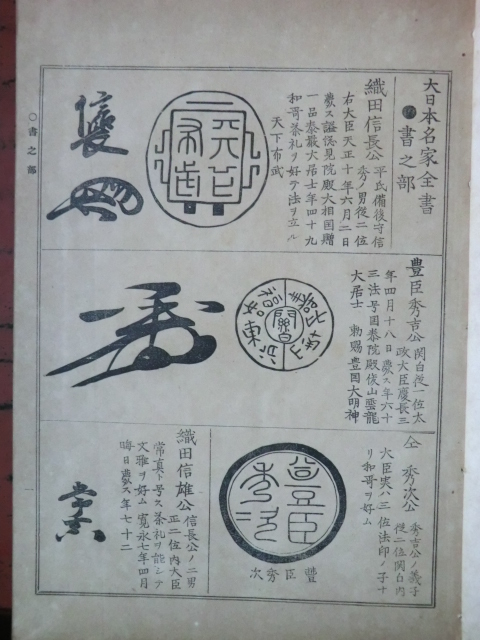 大日本名家全書
書之部
織田信長公 平氏備後守信
秀ノ男従二位
右大臣天正十年六月二日
薨ス謚惣見院殿大相国贈
一品泰巌大居士年四十九
和哥茶礼ヲ好テ法ヲ立ル
天下布武
豊臣秀吉公 関白従一位太
政大臣慶長三
年四月十八日薨ス年六十
三法号国泰院殿俊山雲龍
大居士 勅賜豊国大明神
仝 秀次公 秀吉公ノ義子
従二位関白内
大臣実ハ三位法印ノ子十
リ和哥ヲ好ム
豊臣秀次
豊臣秀次
織田信雄公 信長公ノ二男
正二位内大臣
常真ト号ス茶礼ヲ能シテ
文雅ヲ好ム寛永七年四月
晦日薨ス年七十二
〇書之部